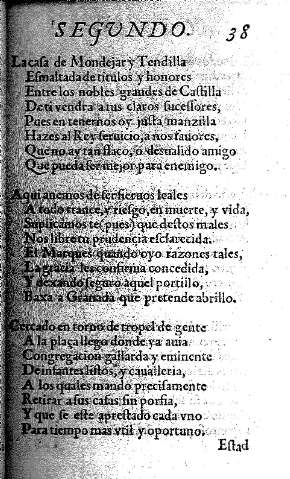 SEGVNDO. 38
La casa de Mondejar y Tendilla
Esmaltada de titulos y honores
Entre los nobles grandes de Castilla
De ti vendra a tus claros sucessores,
Pues en tenernos oy justa manzilla
Hazes al Rey seruicio, a nos fauores,
Que no ay tan flaco, o desualido amigo
Que pueda ser mejor para enemigo.
Aqui an de seros sieruos leales
A todo trance, y riesgo, en muerte, y vida,
Suplicamos te (pues) que destos males
Nos libre tu prudencia esclarecida.
El Marques quando oyo razones tales,
La gracia les confirma concedida,
Y dexando seguro aquel portillo,
Baxa a Granada que pretende abrillo.
Cercado en torno de tropel de gente
A la plaça llego donde ya auia
Congregacion gallarda y eminente
De infantes listos, y caualleria,
A los quales mando precisamente
Retirar a sus casas sin porfia,
Y que se este aprestado cada vno
Para tiempo mas vtil y oportuno.
Estad